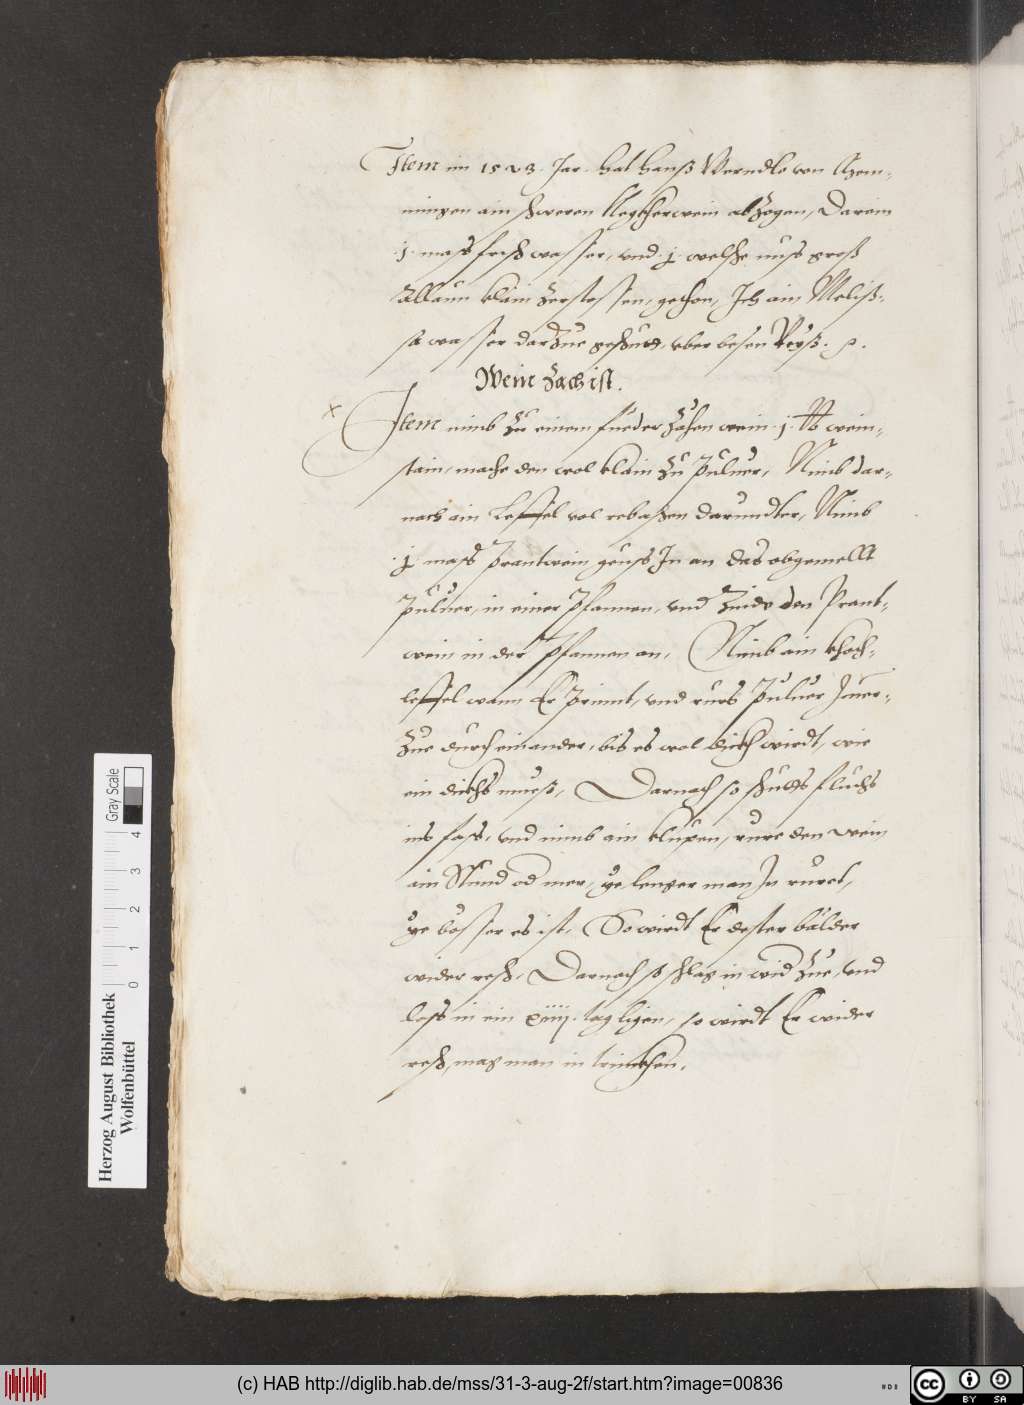 Item im 1523. Jar. hat hanß Werndle von Chem-
ningen ain schweren Neckherwein abzogen, Darein
·j· mass frisch wasser, und ·j· welsche nuss groß
Allaun klain zerstossen, gethon, Ich ain Meliss-
sa wasser darzue geschutt, uber besen Reyß. p.
Wein Zach ist.
Item nimb zu einem fueder zähen wein ·j· lb wein-
stain, mache den wol klain zu puluer, Nimb dar-
nach ain Leffel vol rebaschen darundter, Nimb
·j· mass prantwein geuss In an das obgemellt
puluer, in einer pfannen, und zindt den Prant-
wein in der pfannen an, Nimb ain khoch-
leffel wann Er prinnt, und rurs puluer Imer-
zue durcheinander, bis es wol dickh wirdt, wie
ein dickhs mueß, Darnach so schutts fluchs
ins fass, und nimb ain klupen, rure den wein
ain Stund od mer, ye lenger man In ruret,
ye besser es ist, So wirdt Er dester bälder
wider resch, Darnach so schlag in wid zue, und
lass in ein xiiij. tag ligen, so wirdt Er wider
resch, mag man in trinckhen.
Herzog August Bibliothek
Wolfenbüttel
0 1 2 3 4
Gray Scale
(c) HAB http://diglib.hab.de/mss/31-3-aug-2f/start.htm?image=00836
HAB
cc BY SA